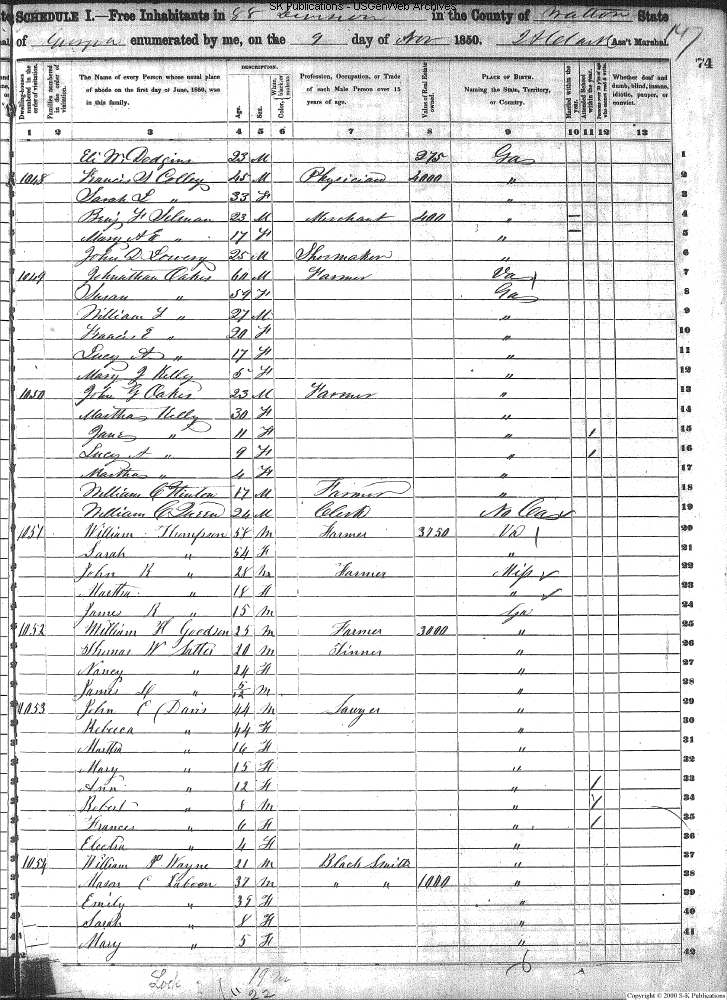 SK Publications - USGenWeb Archives
SCHEDULE I.—Free Inhabitants in 88 Division in the County of Walton State
of Georgia enumerated by me, on the 9 day of Nov 1850. Ass't Marshal. 147
74
DESCRIPTION.
Dwelling-houses numbered in the order of visitation. Families numbered in the order of visitation. The Name of every Person whose usual place of abode on the first day of June, 1850, was in this family. Age. Sex. Color, White, black, or mulatto. Profession, Occupation, or Trade of each Male Person over 15 years of age. Value of Real Estate owned. PLACE OF BIRTH. Naming the State, Territory, or Country. Married within the year. Attended School within the year. Whether deaf and dumb, blind, insane, idiotic, pauper, or convict.
1 2 3 4 5 6 7 8 9 10 11 12 13
Eli W Dodgins 23 M 375 Gao 1
1048 Francis S Colley 45 M Physician 4000 " 2
Sarah L " 33 F " 3
Benj F Selman 23 M Merchant 400 " 4
Mary A E " 17 F " 5
John D Lowery 25 M Shoemaker " 6
1049 Johnathan Oakes 60 M Farmer Va 7
Susan " 59 F Gao 8
William F " 27 M " 9
Francis E " 20 F " 10
Lucy A " 17 F " 11
Mary J Kelley 5 F " 12
1050 John G Oakes 23 M Farmer " 13
Martha Kelly 30 F " 14
Jane " 11 F " 1 15
Lucy A " 9 F " 1 16
Martha " 4 F " 17
William C Hinton 17 M Farmer " 18
William C Queen 24 M Clerk No Caa 19
1051 William Thompson 58 M Farmer 3750 Va 20
Sarah " 54 F " 21
John R " 28 M Farmer Miss 22
Martha " 18 F " 23
James R " 15 M Ga 24
1052 William H Goodson 25 M Farmer 3000 " 25
Thomas W Satter 20 M Tinner " 26
Nancy " 24 F " 27
James M " 5/12 M " 28
1053 John C Davis 44 M Sawyer " 29
Rebecca " 44 F " 30
Martha " 16 F " 31
Mary " 15 F " 32
Ann " 12 F " 1 33
Robert " 8 M " 1 34
Frances " 6 F " 1 35
Electra " 4 F " 36
1054 William P Wayne 21 M Black Smith " 37
Mason C Laboon 37 M " " 1000 " 38
Emily " 39 F " 39
Sarah " 8 F " 40
Mary " 5 F " 41
42
6
22
Copyright © 2000 S-K Publications